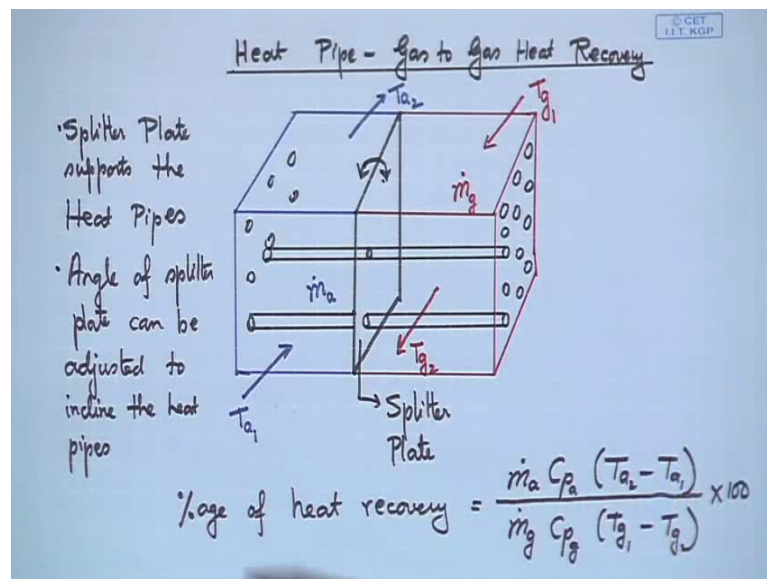 © CET
I.I.T. KGP
Heat Pipe - Gas to Gas Heat Recovery
Ta2
Tg1
• Splitter Plate
supports the
Heat Pipes
ṁg
• Angle of splitter
plate can be
adjusted to
incline the heat
pipes
ṁa
Tg2
Ta1
Splitter
Plate
%age of heat recovery = ṁa Cpa (Ta2 - Ta1) / ṁg Cpg (Tg1 - Tg2) × 100